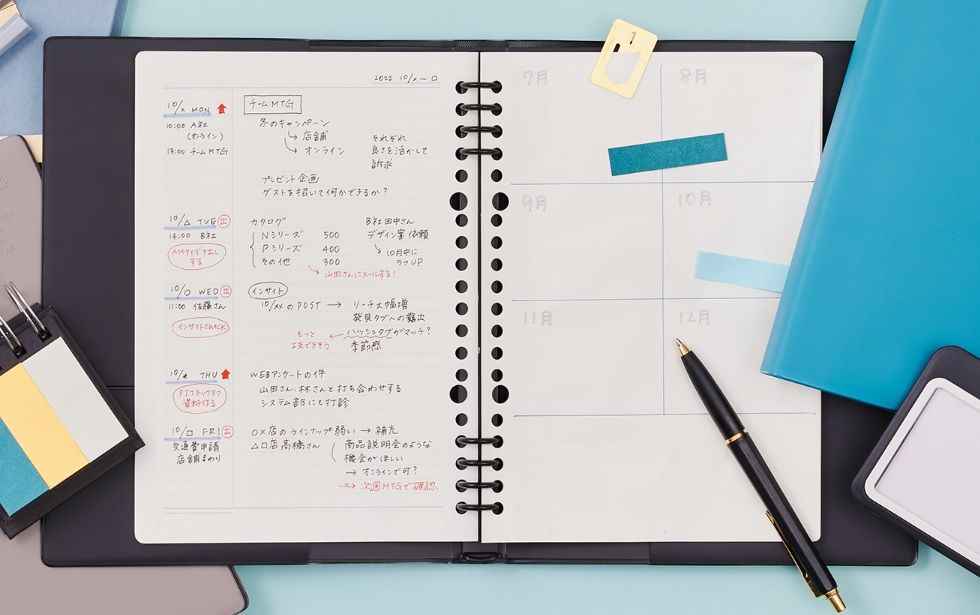 2022. 10/x ~ □
10/x MON
10:00 A社
(オンライン)
13:00 チームMTG
チームMTG
冬のキャンペーン
↳ 店舗
↳ オンライン
それぞれ
良さを活かして
訴求
プレゼント企画
ゲストを招いて何かできるか?
10/△ TUE
14:00 B社
AMアイデア出し
する
カタログ
Nシリーズ 500
Pシリーズ 400
その他 300
→ 山田さんにメールする!
B社田中さん
デザイン案依頼
↳ 10月中に
ラフUP
10/○ WED
11:00 佐藤さん
インサイトCHECK
インサイト
10/xxのPOST → リーチ大幅増
発見タブへの露出
ハッシュタグがマッチ?
季節感
もっと
10/* THU
PJTキックオフ
資料作る
WEBアンケートの件
山田さん、林さんと打ち合わせする
システム部にも打診
10/□ FRI
交通費申請
店舗まわり
○×店のラインナップ弱い → 補充
△□店高橋さん
商品説明会のような
機会がほしい
→ オンラインで可?
→ 次週MTGで確認、
7月
8月
9月
10月
11月
12月